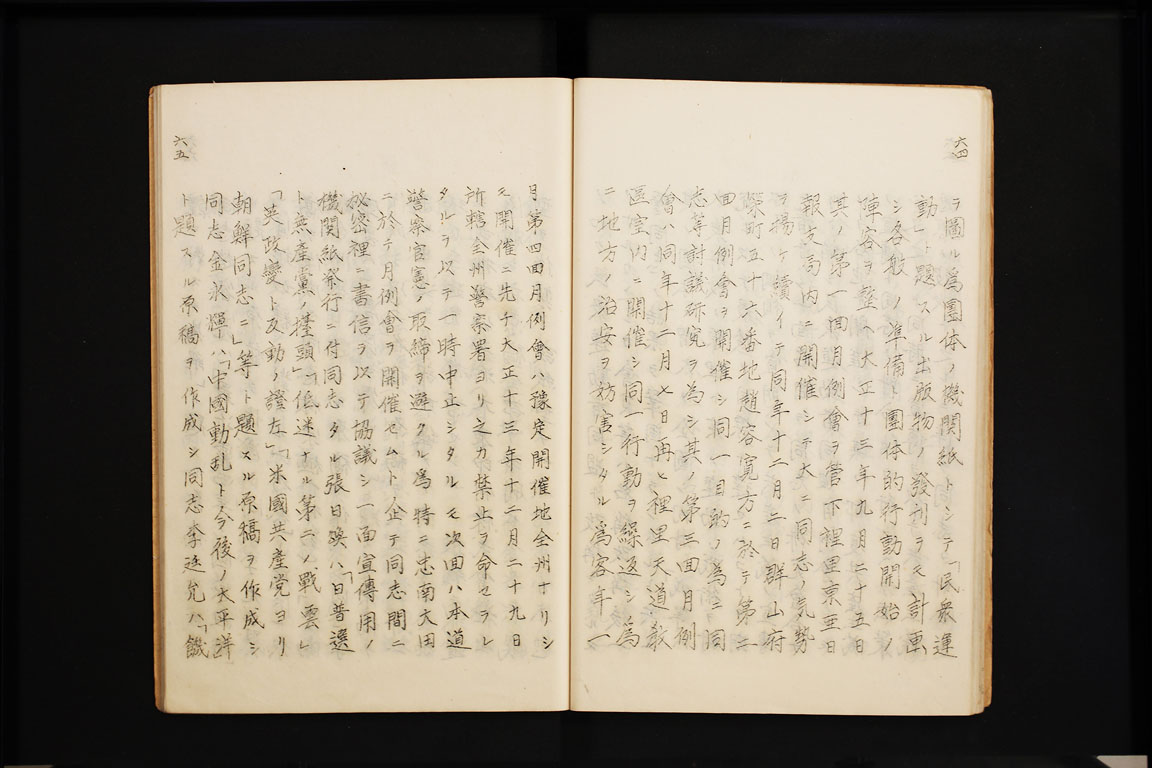 六四
ヲ圖ル爲團体ノ機関紙トシテ「民衆運
動」ト題スル出版物ノ發刊ヲモ計画
シ各般ノ準備ト團体的行動開始ノ
陣容ヲ整ヘ大正十三年九月二十五日
其ノ第一回月例會ヲ管下裡里東亜日
報支局内ニ開催シテ大ニ同志ノ気勢
ヲ揚ケ續イテ同年十二月二日群山府
栄町五十六番地趙容寛方ニ於テ第二
回月例會ヲ開催シ同一目的ノ為ニ同
志等討議研究ヲ為シ其ノ第三回月例
會ハ同年十二月七日再ヒ裡里天道教
區室内ニ開催シ同一行動ヲ繰返シ爲
ニ地方ノ治安ヲ妨害シタル爲客年一
六五
月第四回月例會ハ豫定開催地全州ナリシ
モ開催ニ先チ大正十三年十二月二十九日
所轄全州警察署ヨリ之カ禁止ヲ命セラレ
タルヲ以テ一時中止シタルモ次回ハ本道
警察官憲ノ取締ヲ避クル爲特ニ忠南大田
ニ於テ月例會ヲ開催セムト企テ同志間ニ
秘密裡ニ書信ヲ以テ協議シ一面宣傳用ノ
機関紙発行ニ付同志タル張日煥ハ「日普選
ト無産黨ノ擡頭」「低迷ナル第二ノ戰雲」
「英政變ト反動ノ證左」「米國共産党ヨリ
朝鮮同志ニ」等ト題スル原稿ヲ作成シ
同志金永輝ハ「中國動乱ト今後ノ太平洋
ト題スル原稿ヲ作成シ同志李廷允ハ「饑